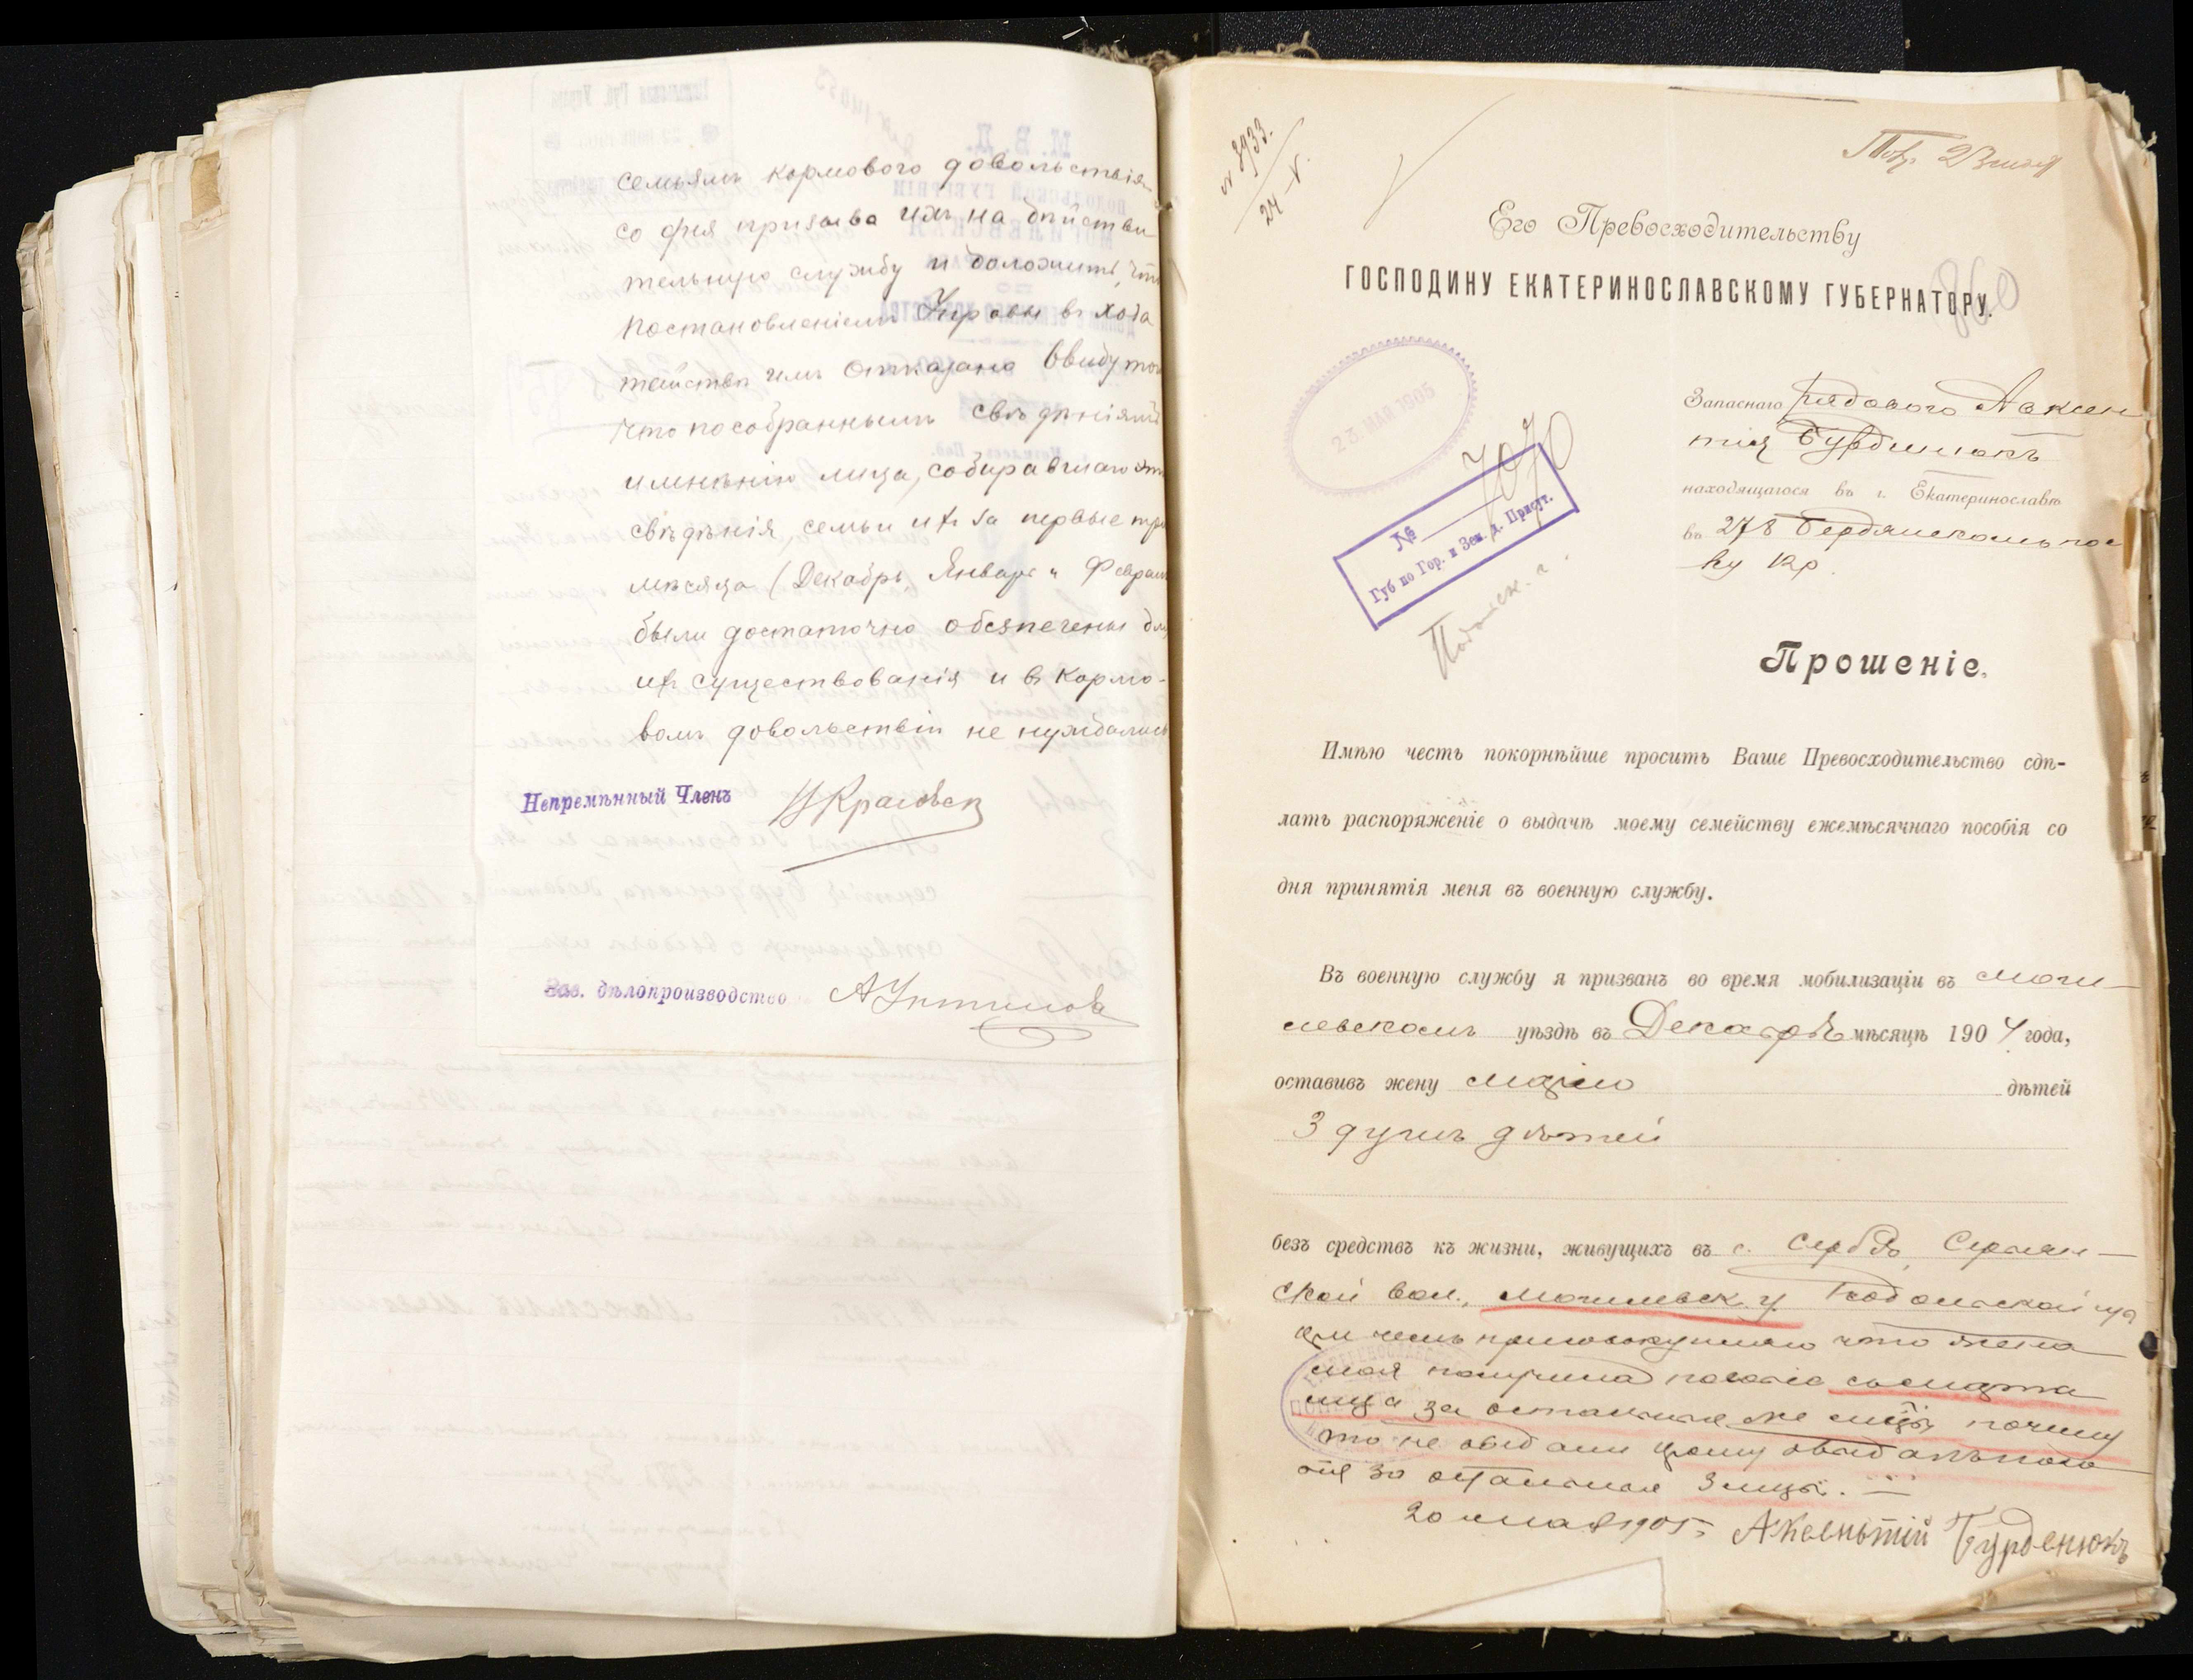 семьямъ кормового довольствія
со дня призыва ихъ на дѣйстви
тельную службу и доложить, что
постановленіемъ Управы въ хода
тайствѣ имъ отказано ввиду того
что по собраннымъ свѣдѣніямъ
и мнѣнію лица, собиравшаго эти
свѣдѣнія, семьи ихъ за первые три
мѣсяца (Декабрь, Январь и Февраль
были достаточно обезпечены для
ихъ существованія и въ кормо-
вомъ довольствіи не нуждались
Непремѣнный Членъ
Зав. дѣлопроизводство
№ 8933.
24-V.
Его Превосходительству
ГОСПОДИНУ ЕКАТЕРИНОСЛАВСКОМУ ГУБЕРНАТОРУ.
23 МАЯ 1905
7070
№
Губ по Гор. и Зем. Д. Присут.
Подольск. г.
Запаснаго рядового Авксен
тія Бурденюкъ
находящагося въ г. Екатеринославѣ
въ 278 Бердянскомъ пол
ку
Прошеніе.
Имѣю честь покорнѣйше просить Ваше Превосходительство сдѣ-
лать распоряженіе о выдачѣ моему семейству ежемѣсячнаго пособія со
дня принятія меня въ военную службу.
Въ военную службу я призванъ во время мобилизаціи въ Моги-
левскомъ уѣздѣ въ Декабрѣ мѣсяцѣ 1904 года,
оставивъ жену дѣтей
3 душъ дѣтей
безъ средствъ къ жизни, живущихъ въ с. Сербы, Сербян-
ской вол., Могилевск. у. Подольской губ
при чемъ присовокупляю что жена
моя получила пособіе съ марта
м-ца за остальные же м-цы почему
то не выдали прошу выдать пособ
іе за остальные 3 м-цы. —
20 мая 1905 г. Аксеньтій Бурденюкъ